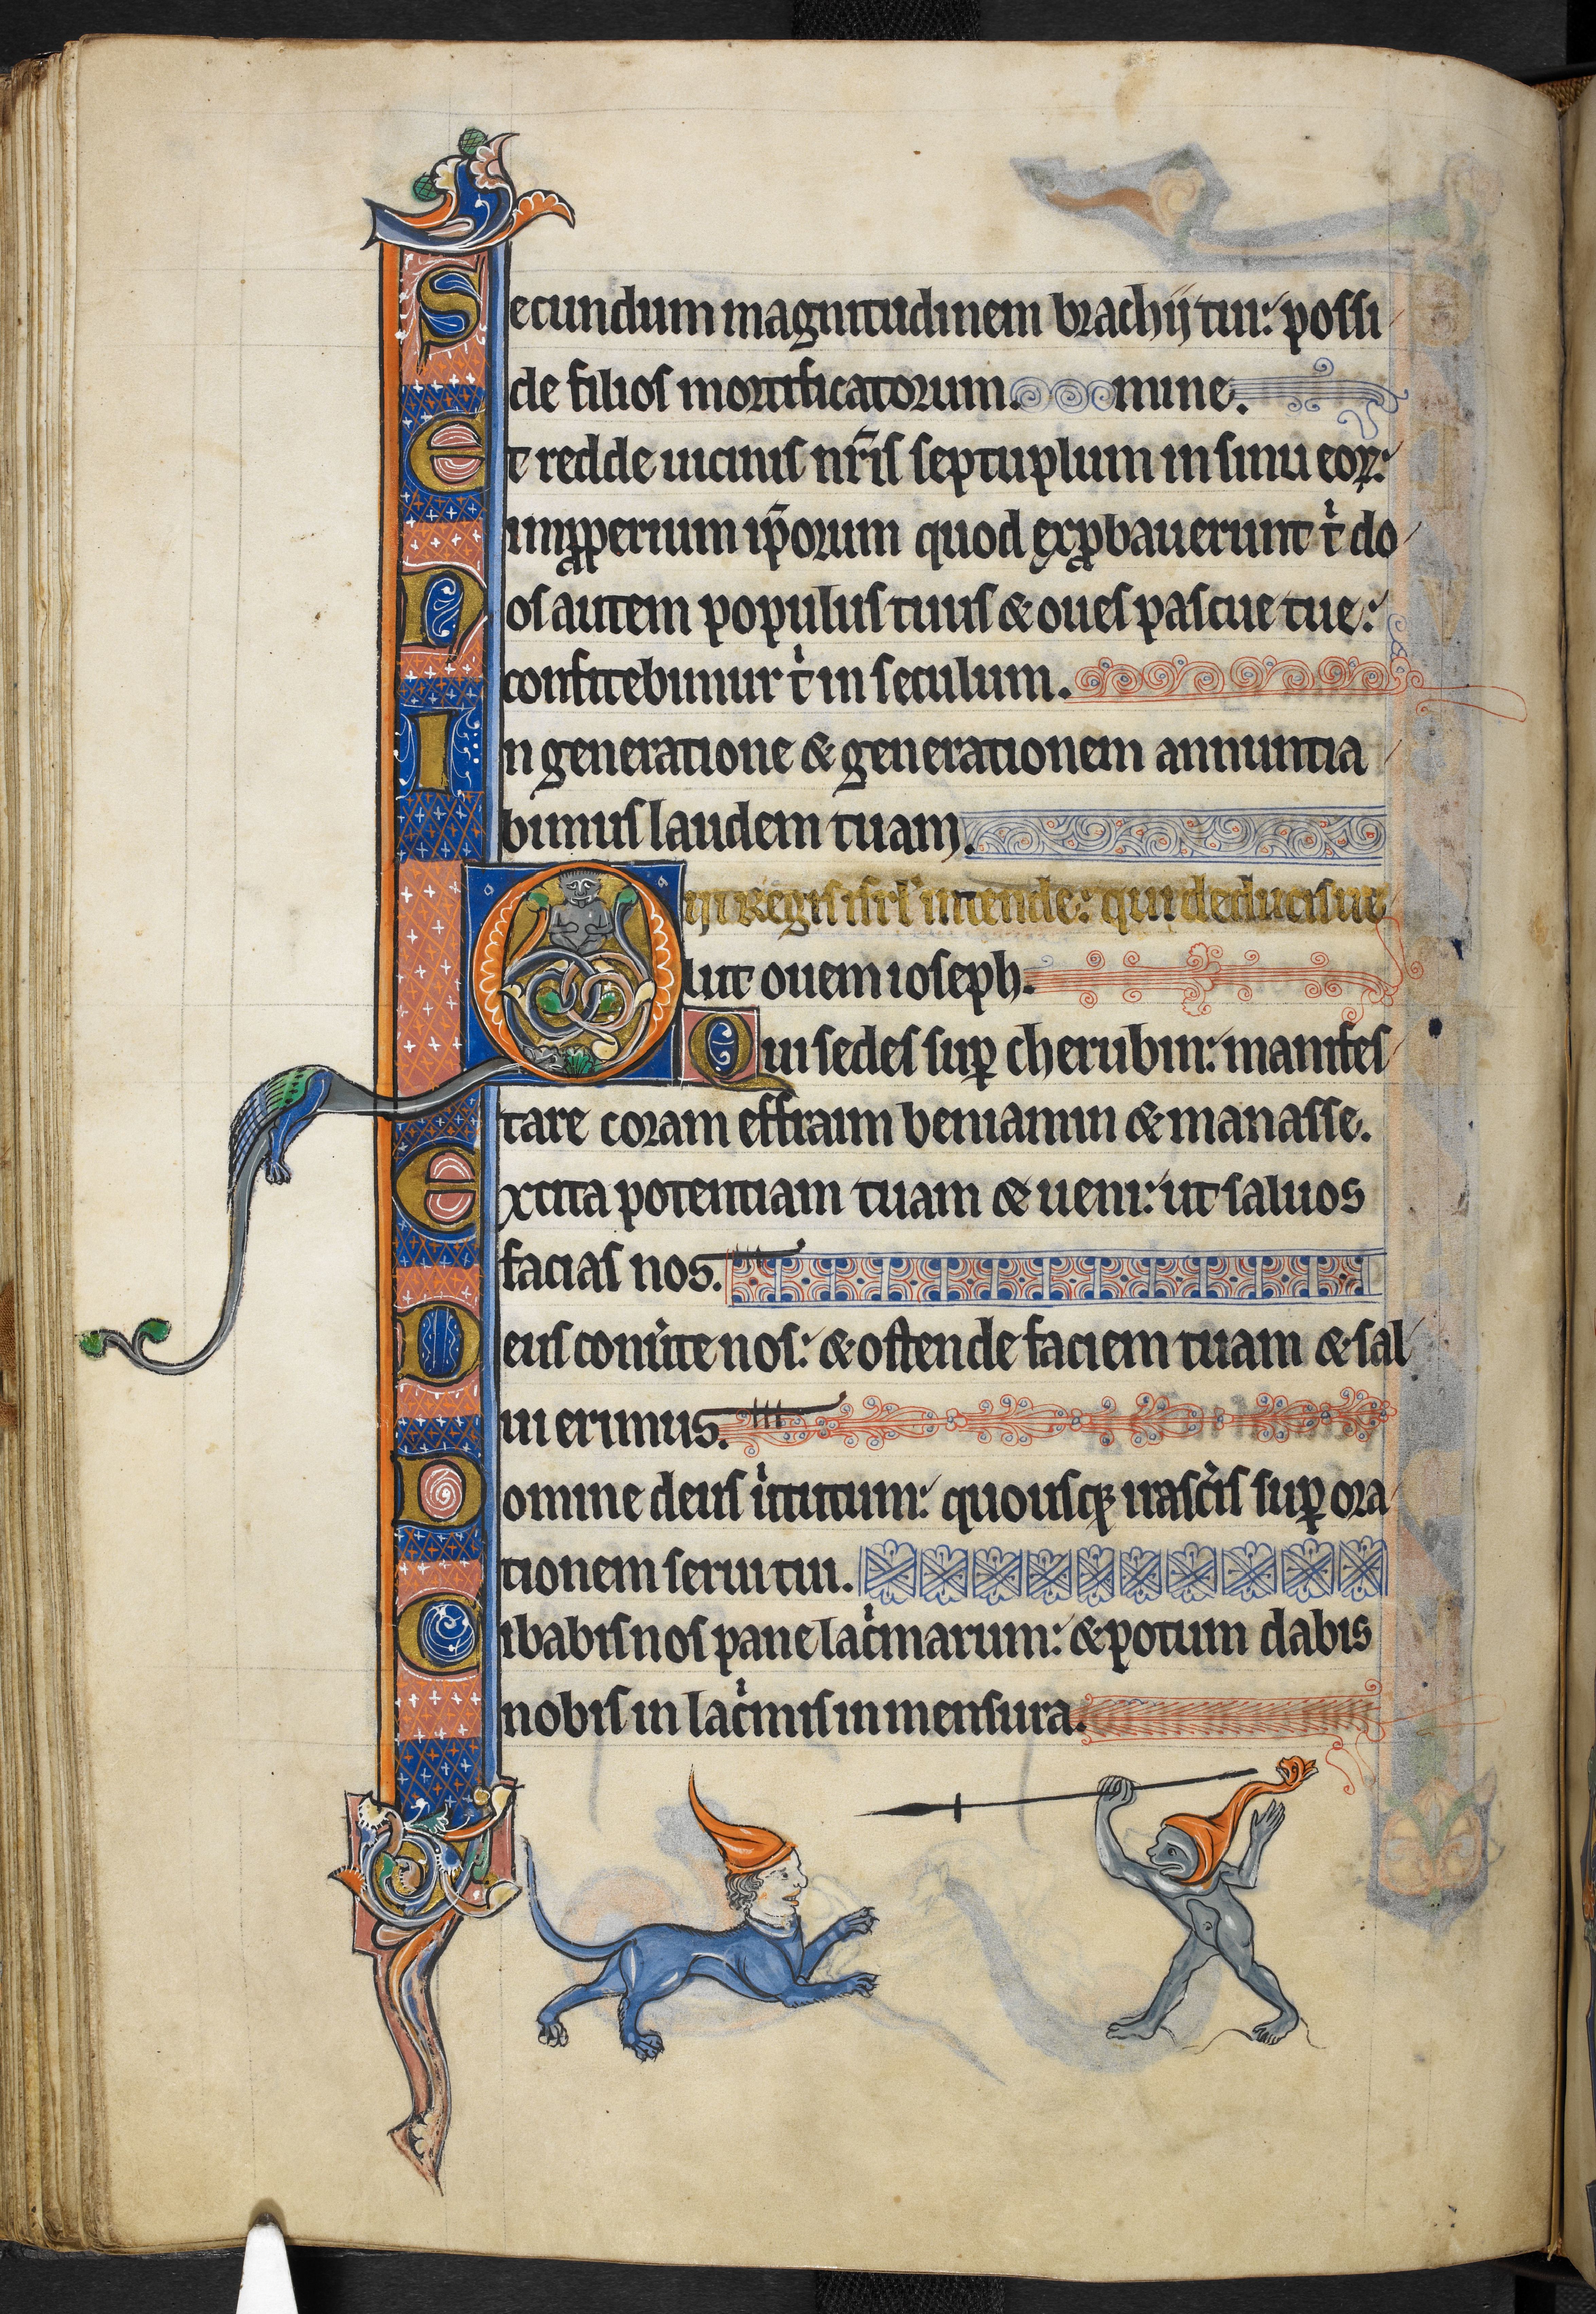 Secundum magnitudinem brachij tui: possi
de filios mortificatorum. mine.
Et redde uicinis nr̃is septuplum in sinu eoꝝ:
imꝓperium ip̃orum quod exꝓbauerunt tͥ do
Nos autem populus tuus & oues pascue tue:
confitebimur tͥ in seculum.
In generatione & generationem annuntia
bimus laudem tuam.
Qui regis isrl̃ intende: qui deducis ue
lut ouem ioseph.
Qui sedes suꝑ cherubin: manifes
tare coram effraim beniamin & manasse.
Excita potentiam tuam & ueni: ut saluos
facias nos.
Deus conu̾te nos: & ostende faciem tuam & sal
ui erimus.
Domine deus uͥtutum: quousqꝫ irasc̾is suꝑ ora
tionem serui tui.
Cibabis nos pane lacͥmarum: & potum dabis
nobis in lacͥmis in mensura.